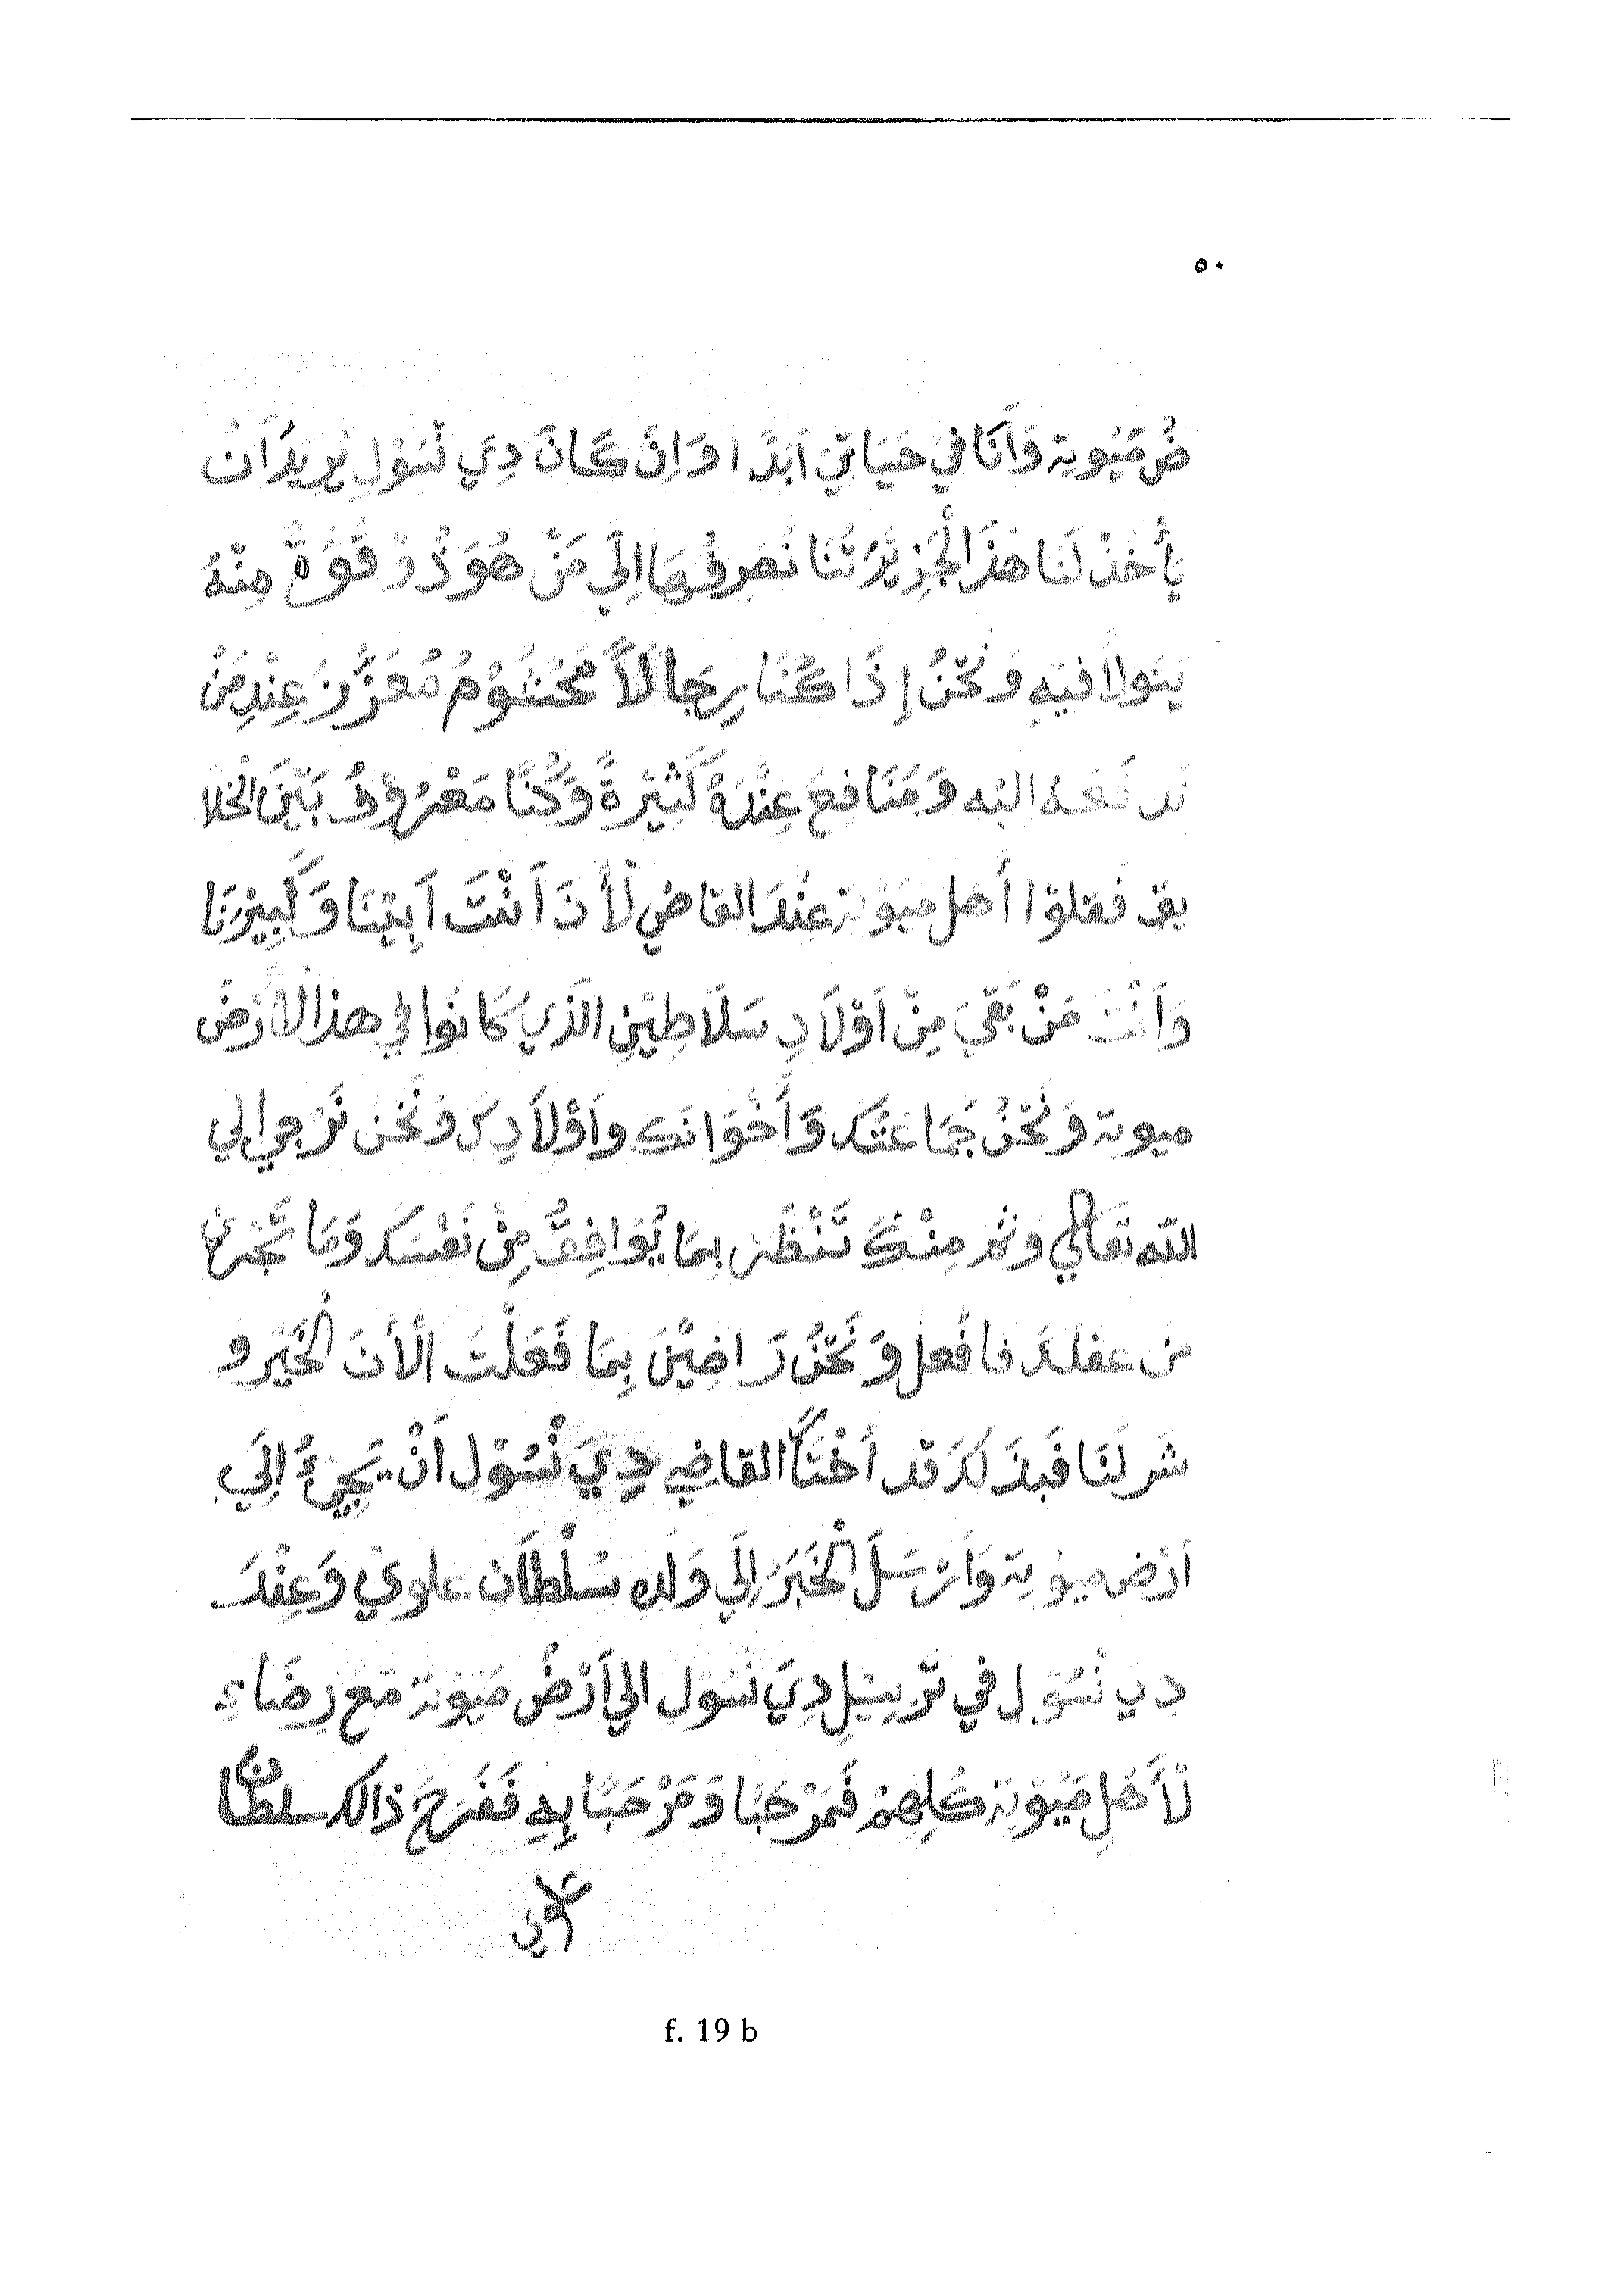 ٥٠
ضُ مَيُوتة وَأَنَا فِيْ حَيَاتِيْ اَبَدًا وَاِنْ كَانَ دِيَ نْسُوْلِ يُرِيْدُ اَنْ
يَأْخُذْ لَنَا هَذَا الْجَزِيْرَتُنَا نَصْرِفُهَا اِلَي مَنْ هُوَ ذُوْ قُوَّةْ مِنْهُ
يَتولا فيْهِ وَنَحْنُ إِذَا كُنَا رِجَالاً مَحْتَشُوْمُ مُعَزَّزُ عِنْدِ مَنْ
نَدفَعَهُ اليْه وَمَنَافِعْ عِنْدَهُ كَثِيْرَةً وَكُنَّا مَعْرُوْفُ بَيْنَ الْخَلا
يق فقلوْا أَهل ميوتة عِنْدَ القاضِي لأَنَ اَنْتَ اَبِيْنَا وَكَبِيْرَنَا
وَاَنْتَ مَنْ بَقِيَ مِنْ اَوْلاَدِ سَلاَطِيْنِ الَّذِي كَانُوا في هذا الاَرْضَ
ميوتة وَنَحْنُ جَمَاعَتَكَ وَأَخْوَانَكَ واَوْلاَدِكَ وَنَحْنُ نَرْجي الي
الله تَعَالَي وثم مِنْكَ تَنْظُرْ بِمَا يُوَافِقُ مِنْ نَفْسَكَ وَمَا تَجْرِيْ
من عقلكَ فافْعل وَنَحْنُ رَاضِيْنَ بِمَا فَعَلْتَ الْأَنَ الْخَيْر و
شَر لَنَا فَبِذَ لَكَ قد اَخْتَاَ القاضِي دِيَ نْسُوْل اَنْ يَجِيْءُ اِلَي
اَرْض ميوتة وَاَرْسَلَ الْخَبَرَ اِلَي وَلده سُلْطَان علوي وَعِنْدَ
دِيَ نْسُوْل في تَرْسِيْلِ دِيَ نْسُوْلِ الي اَرْضُ مَيُوْتة مَعَ رِضَاءِ
لأَهْلِ مَيُوْتة كُلِهِمْ فَمَرْحَبَا وَمَرْحَبًا بِهِ فَفَرِحَ ذَالِكَ سلطان
علوي
f. 19 b